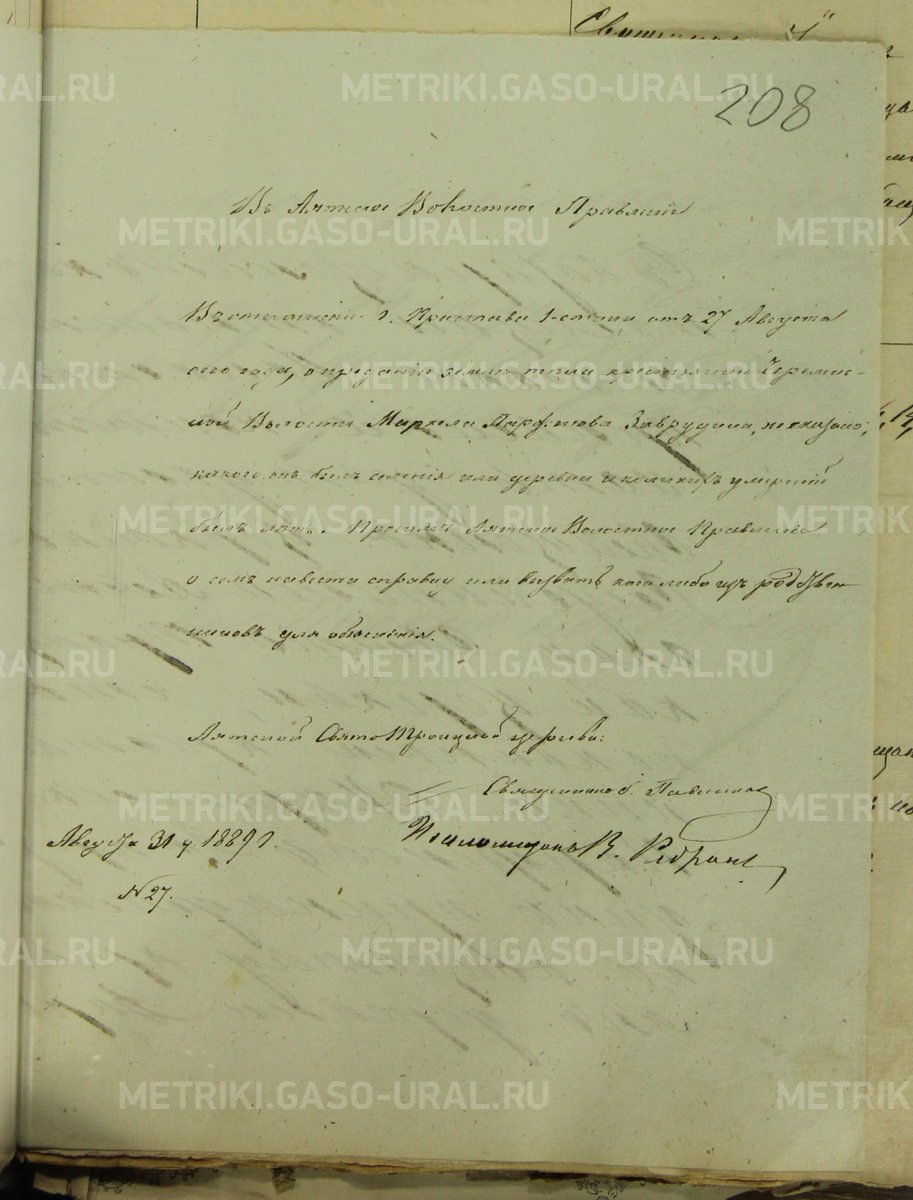 208
Въ Аятское Волостное Правленіе
Въ отношеніи г. Пристава 1 стана отъ 27 Августа
сего года, о преданіи земли тѣла крестьянина Черемис-
ской Волости Маркела Парфенова Заврудина, не сказано,
какого онъ былъ селенія или деревни и коликихъ умершій
былъ лѣтъ. Проситъ Аятское Волостное Правленіе
о семъ навести справку или вызвать кого либо изъ родствен-
никовъ для объясненія.
Аятской Свято Троицкой церкви:
Священникъ Павинов
Псаломщикъ В.
Августа 31 д. 1889 г.
№ 27.
METRIKI.GASO-URAL.RU